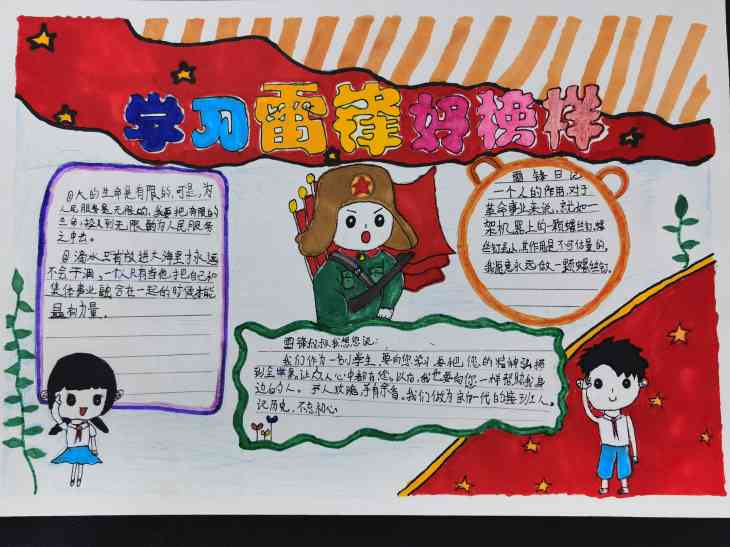 学习雷锋好榜样
人的生命是有限的,可是,为
人民服务是无限的,我要把有限的
生命,投入到无限的为人民服务
之中去。
滴水只有放进大海里才永远
不会干涸,一个人只有当他把自己和
集体事业融合在一起的时候才能
最有力量。
雷锋日记
一个人的作用,对于
革命事业来说,就如一
架机器上的一颗螺丝钉,螺
丝钉虽小,其作用是不可估量的,
我愿意永远做一颗螺丝钉。
雷锋叔叔我想您说:
我们作为一名小学生,要向您学习,要把您的精神弘扬
到全世界。让众人心中都有您。以后,我也要向您一样帮助我身
边的人。予人玫瑰,手有余香。我们做为新一代的接班人。
记历史,不忘初心